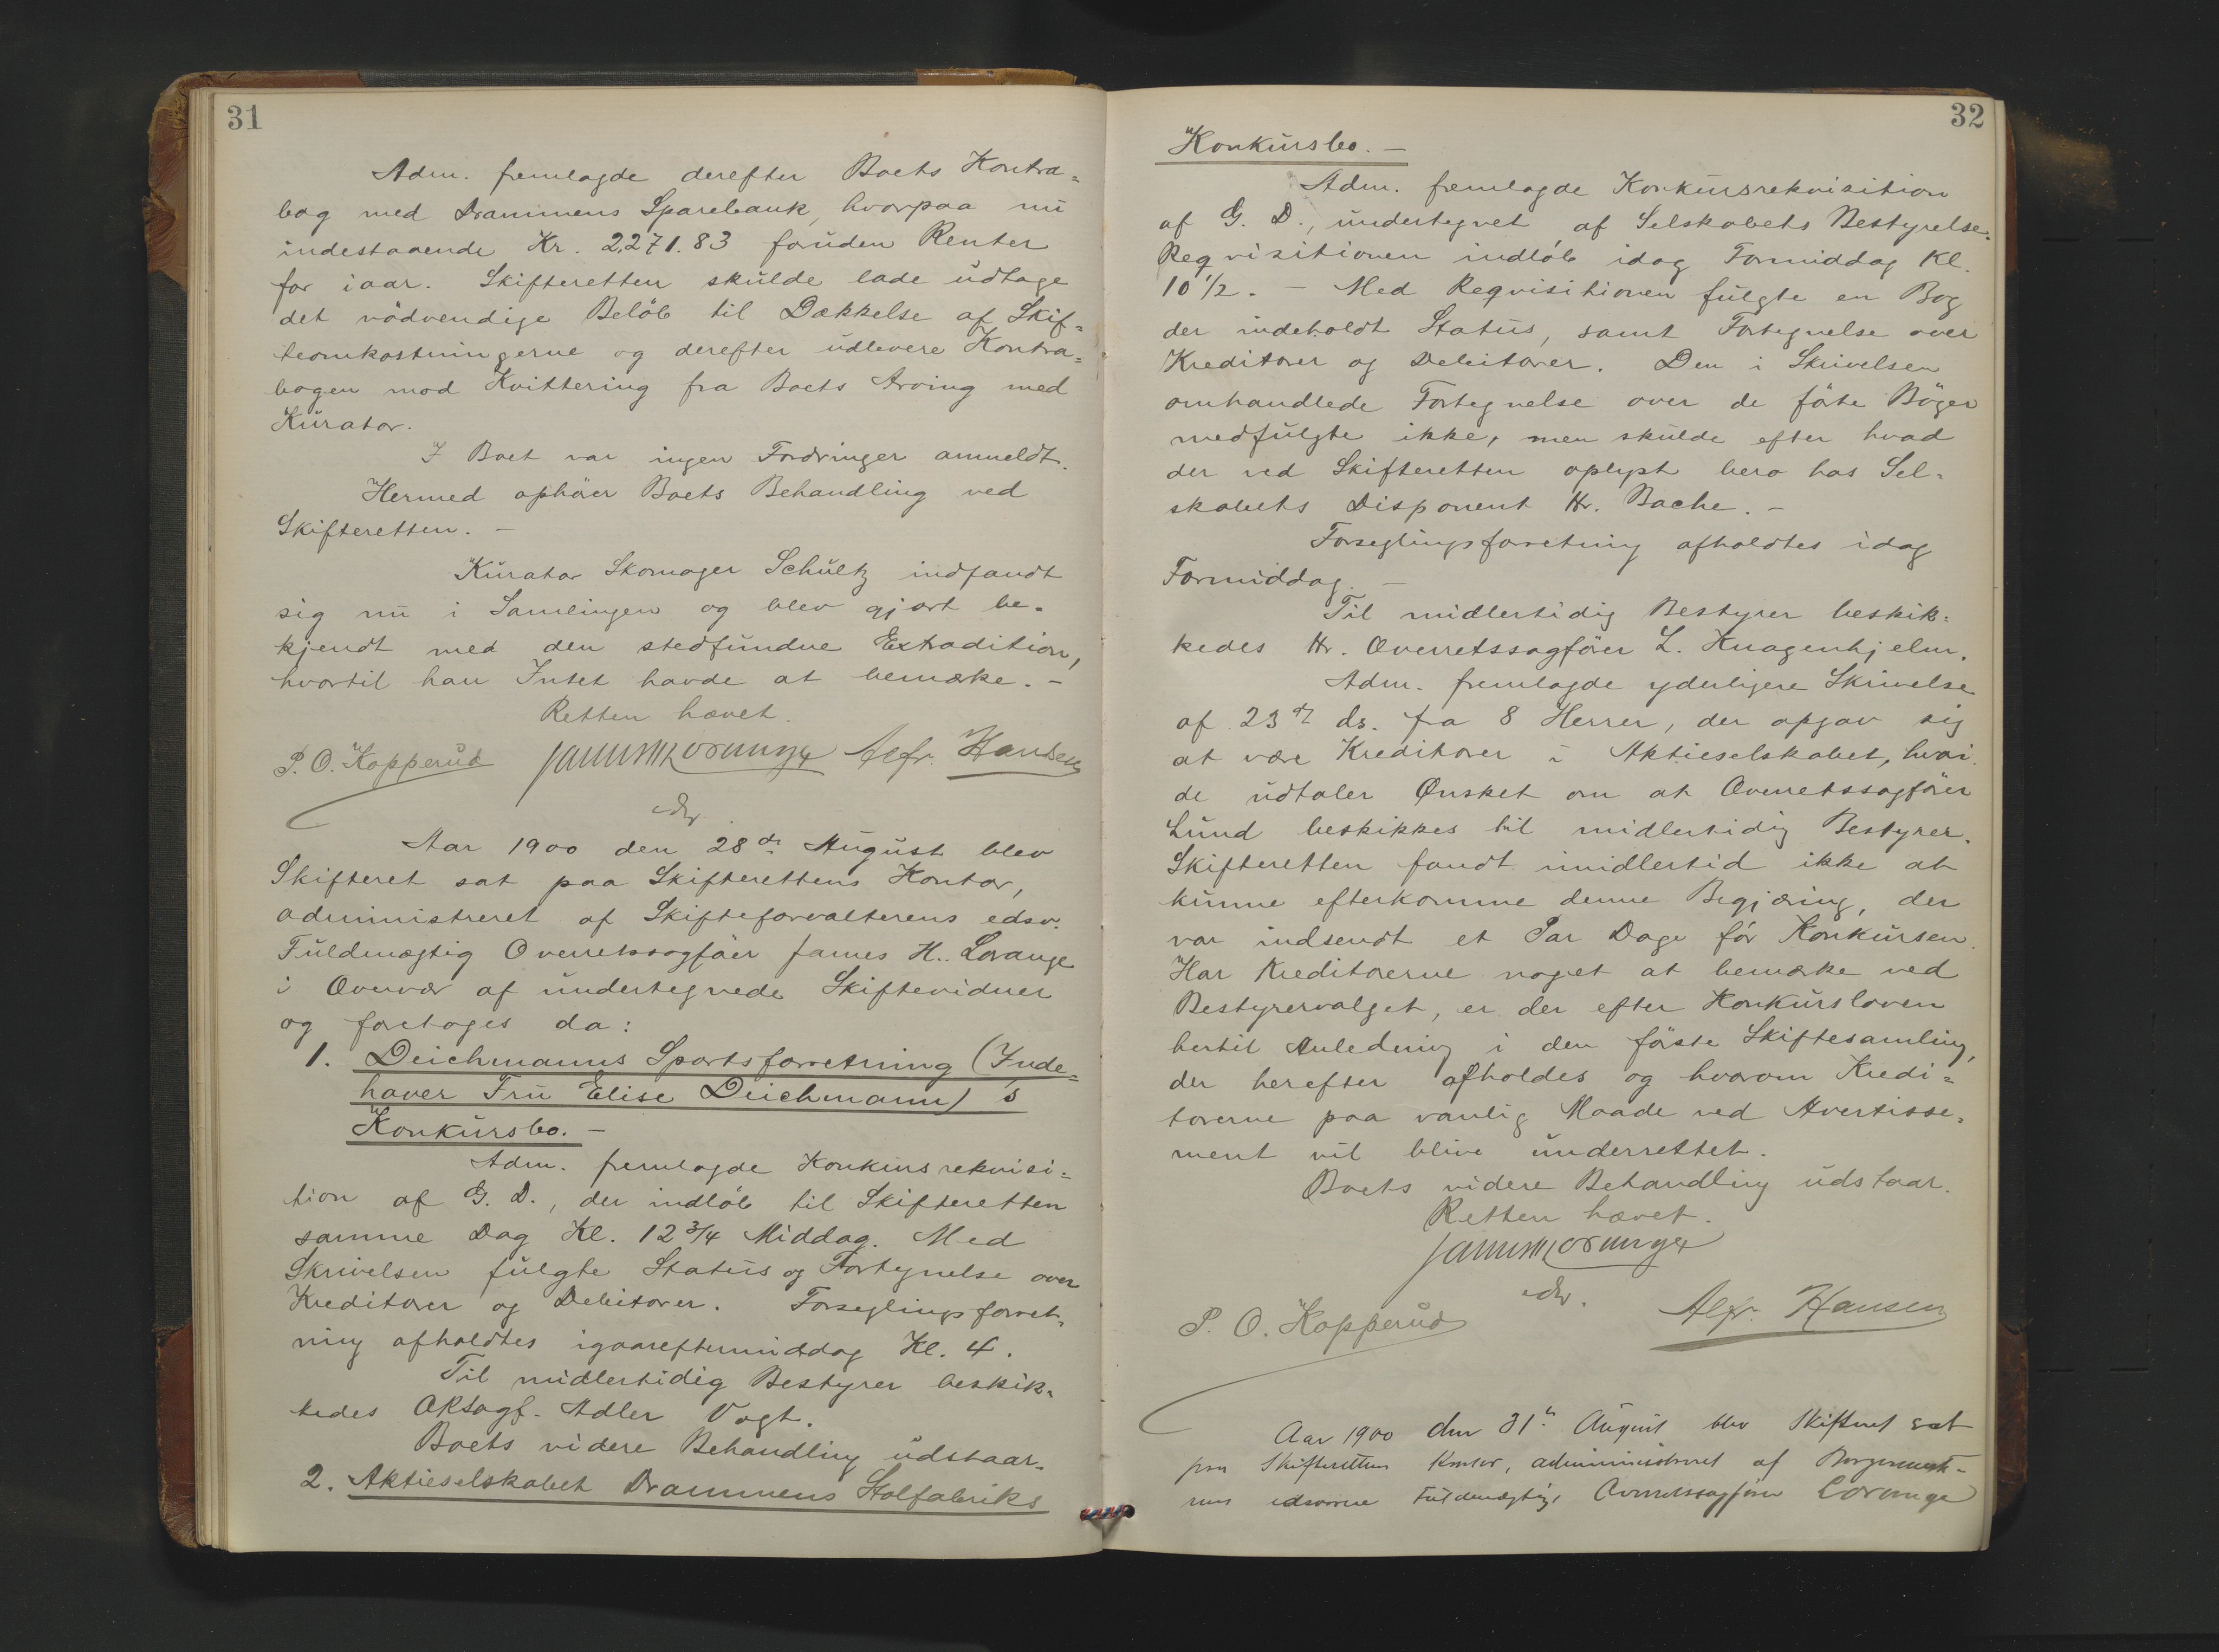 31
Adm. fremlagde derefter Boets Kontra=
bog med Drammens Sparebank, hvorpaa nu
indestaaende Kr. 2,271.83 foruden Renter
for iaar. Skifteretten skulde lade udtage
det nödvendige Belöb til Dækkelse af Skif=
teomkostningerne og derefter udlevere Kontra=
bogen mod Kvittering fra Boets Arving med
Kurator.
I Boet var ingen Fordringer anmeldt.
Hermed ophöer Boets Behandling ved
Skifteretten. –
Kurator Skomager Schultz indfandt
sig nu i Samlingen og blev gjort be=
kjendt med den stedfundne Extradition,
hvortil han Intet havde at bemærke. –
Retten hævet.
P. O. Kopperud James H Lorange Alfr. Hansen
edsv.
Aar 1900 den 28de August blev
Skifteret sat paa Skifterettens Kontor,
administreret af Skifteforvalterens edsv.
Fuldmægtig Overretssagföer James H. Lorange
i Overvær af undertegnede Skiftevidner
og foretoges da:
1. Deichmanns Sportsforretning (Inde=
haver Fru Elise Deichmann)'s
Konkursbo. –
Adm. fremlagde Konkursrekvisi=
tion af G. D., der indlöb til Skifteretten
samme Dag Kl. 12 3/4 Middag. Med
Skrivelsen fulgte Status og Fortegnelse over
Kreditorer og Debitorer. Forseglingsforret=
ning afholdtes igaareftermiddag Kl. 4.
Til midlertidig Bestyrer beskik=
kedes ORsagf. Adler Vogt.
Boets videre Behandling udstaar.
2. Aktieselskabet Drammens Stolfabriks
32
Konkursbo. –
Adm. fremlagde Konkursrekvisition
af G. D., undertegnet af Selskabets Bestyrelse.
Reqvisitionen indlöb idag Formiddag Kl.
10 1/2. – Med Reqvisitionen fulgte en Bog
der indeholdt Status, samt Fortegnelse over
Kreditorer og Debitorer. Den i Skrivelsen
omhandlede Fortegnelse over de förte Böger
medfulgte ikke, men skulde efter hvad
der ved Skifteretten oplyst bero hos Sel=
skabets Disponent Hr. Bache. –
Forseglingsforretning afholdtes idag
Formiddag. –
Til midlertidig Bestyrer beskik=
kedes Hr. Overretssagförer L. Knagenhjelm.
Adm. fremlagde yderligere Skrivelse
af 23de ds. fra 8 Herrer, der opgav sig
at være Kreditorer i Aktieselskabet, hvori
de udtaler Ønsket om at Overretssagförer
Lund beskikkes til midlertidig Bestyrer.
Skifteretten fandt imidlertid ikke at
kunne efterkomme denne Begjæring, der
var indsendt et Par Dage för Konkursen.
Har Kreditorerne noget at bemærke ved
Bestyrervalget, er der efter Konkursloven
hertil Anledning i den förste Skiftesamling,
der herefter afholdes og hvorom Kredi=
torerne paa vanlig Maade ved Avertisse=
ment vil blive underrettet.
Boets videre Behandling udstaar.
Retten hævet.
James H Lorange
edsv.
P. O. Kopperud Alfr. Hansen
Aar 1900 den 31te August blev Skifteret sat
paa Skifterettens Kontor, administreret af Borgermest=
rens edsvorne Fuldmægtig, Overretssagförer Lorange